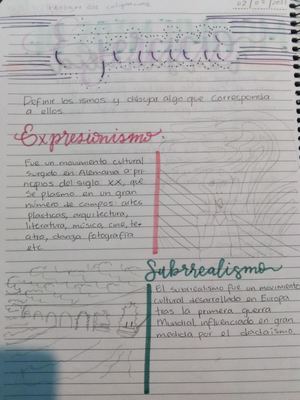 Ejercicio
Definir los ismos y dibujar algo que corresponda
a ellos
Expresionismo.
Fue un movimiento cultural
surgido en Alemania a prin
cipios del siglo XX, que
se plasmo en un gran
número de campos: artes
plasticas, arquitectura,
literatura, música, cine, te-
atro, danza fotografia
etc
Subrrealismo
El subrealismo fue un movimiento
cultural desarrollado en Europa
tras la primera guerra
Mundial influenciado en gran
medida por el dadaísmo.